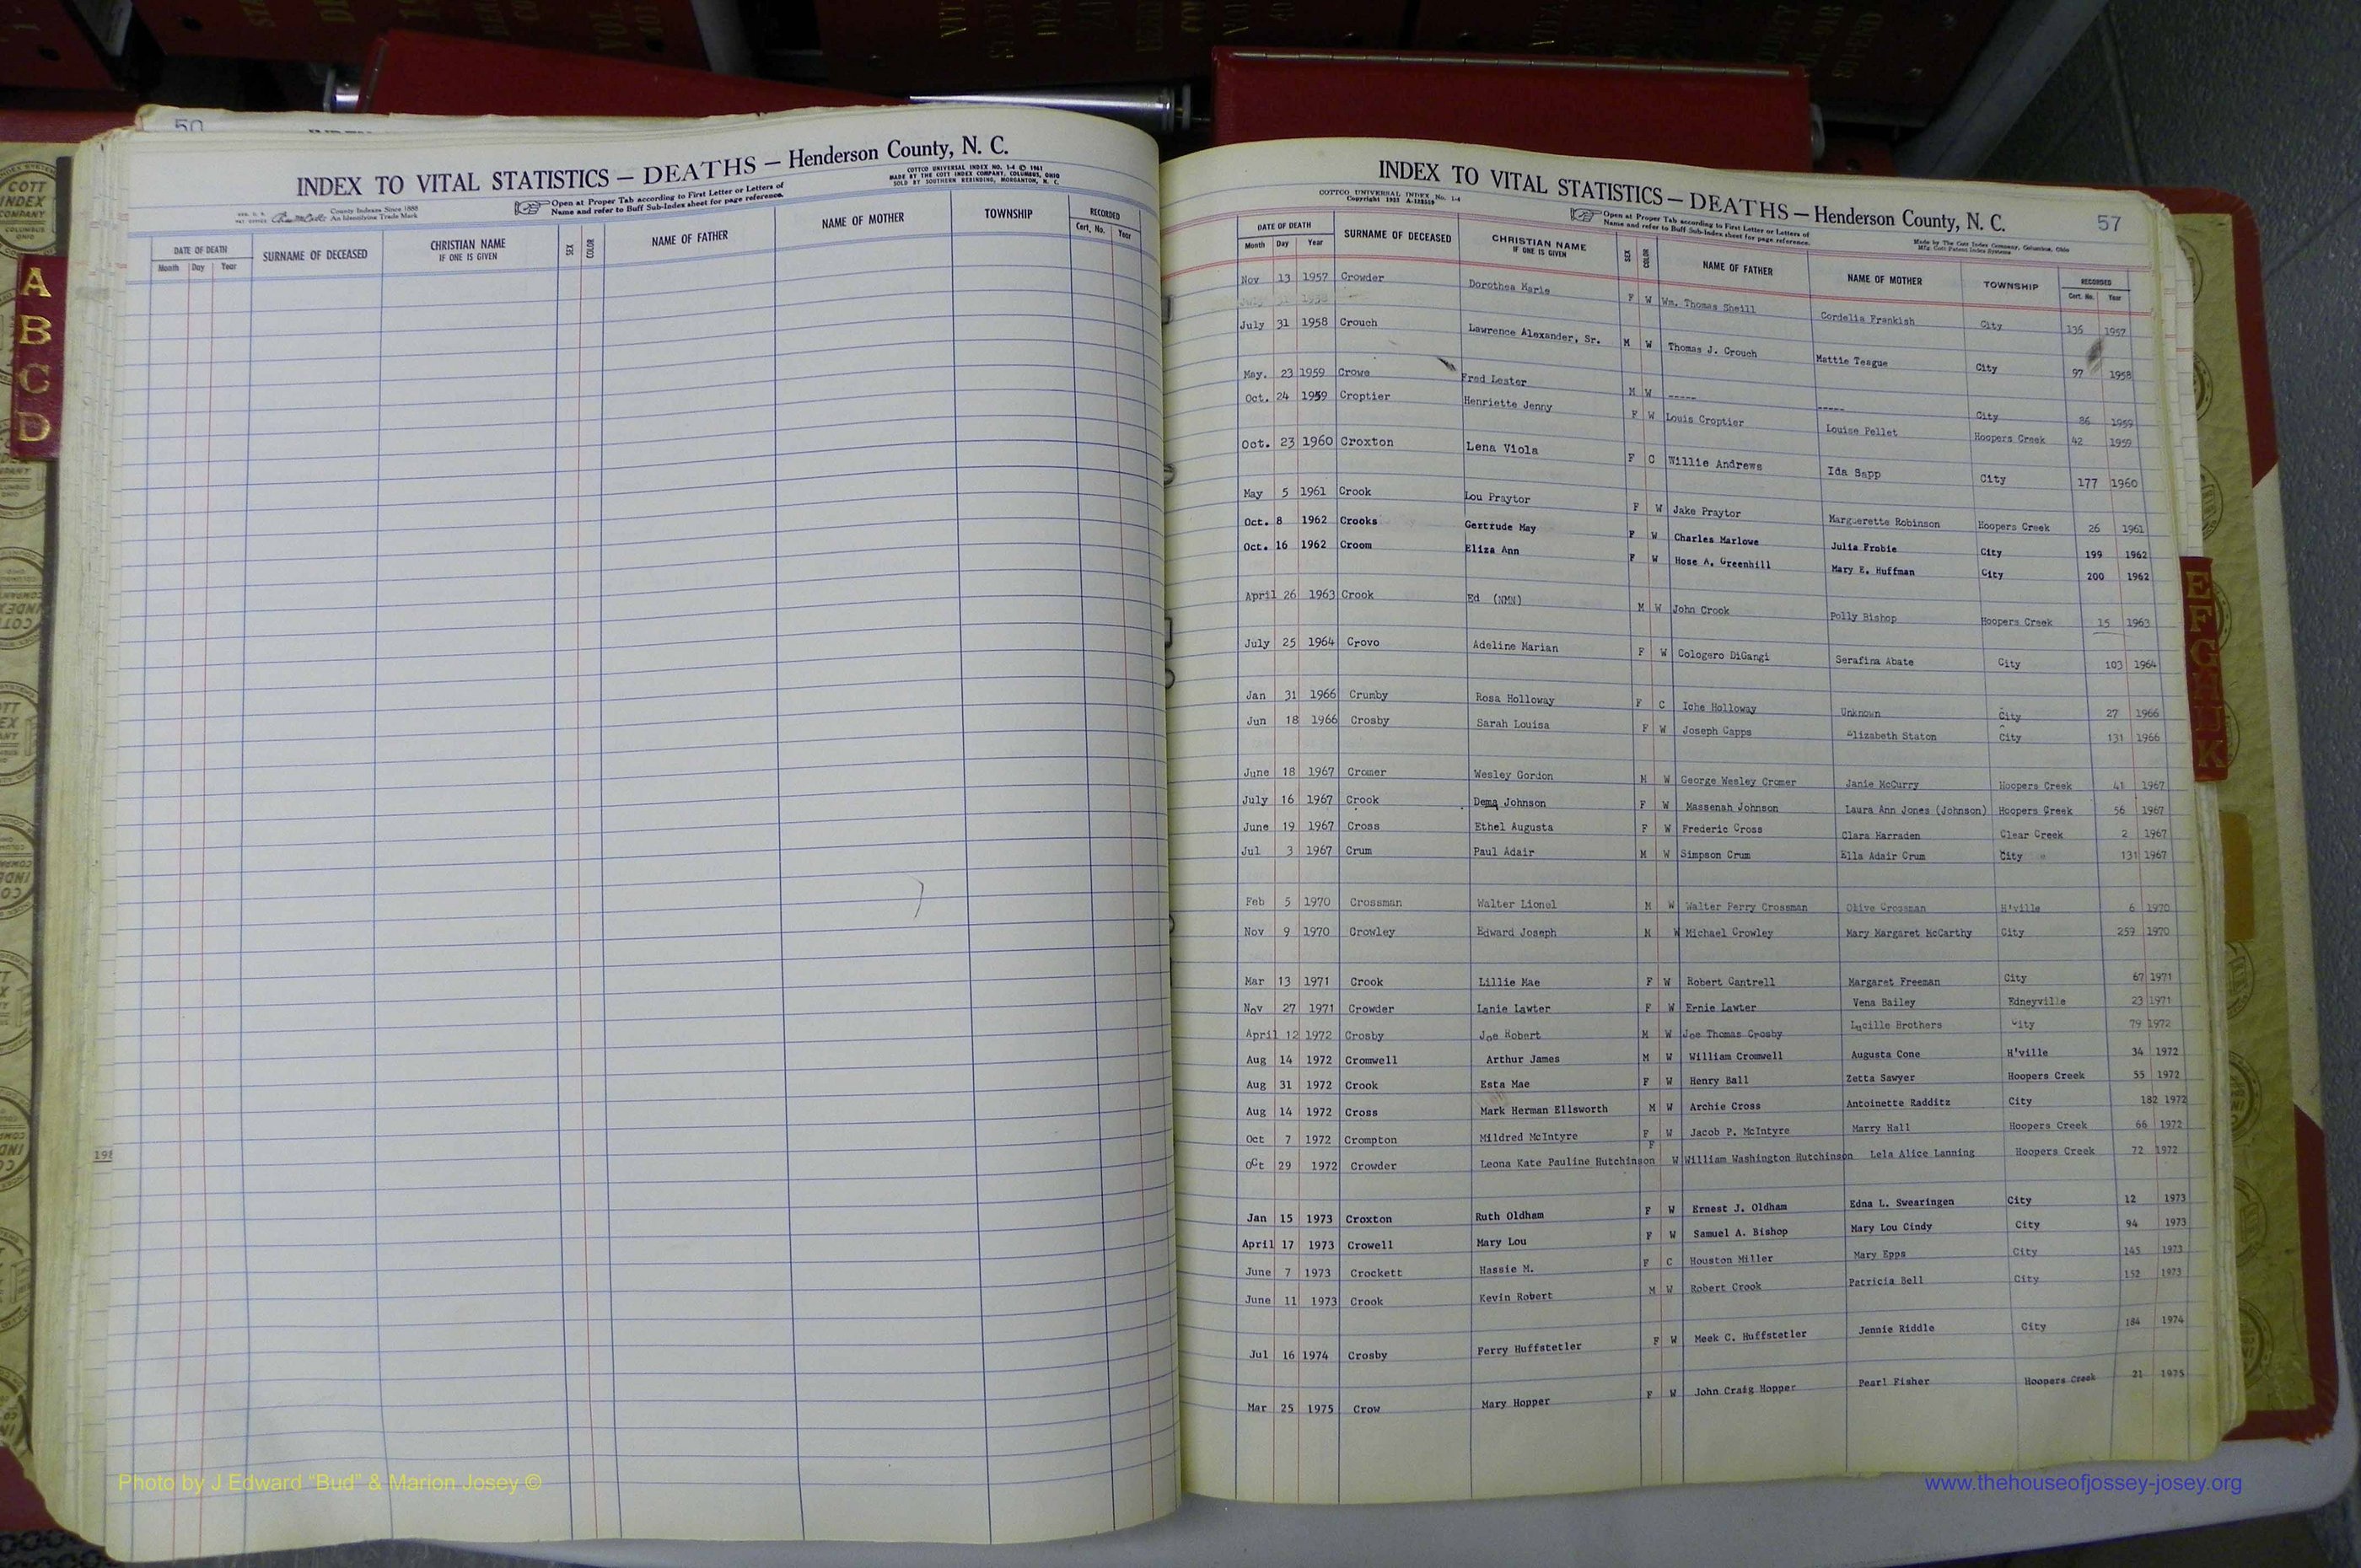 50
INDEX TO VITAL STATISTICS — DEATHS — Henderson County, N. C.
COTTCO UNIVERSAL INDEX NO. 1-4 © 1961
MADE BY THE COTT INDEX COMPANY, COLUMBUS, OHIO
SOLD BY SOUTHERN REBINDING, MORGANTON, N. C.
County Indexes Since 1888
An Identifying Trade Mark
Open at Proper Tab according to First Letter or Letters of
Name and refer to Buff Sub-Index sheet for page reference.
DATE OF DEATH SURNAME OF DECEASED CHRISTIAN NAME IF ONE IS GIVEN SEX COLOR NAME OF FATHER NAME OF MOTHER TOWNSHIP RECORDED
Month Day Year Cert. No. Year
A
B
C
D
COTT
INDEX
COMPANY
COLUMBUS
OHIO
INDEX TO VITAL STATISTICS — DEATHS — Henderson County, N. C.
57
COTTCO UNIVERSAL INDEX No. 1-4
Open at Proper Tab according to First Letter or Letters of
Name and refer to Buff Sub-Index sheet for page reference.
Made by The Cott Index Company, Columbus, Ohio
DATE OF DEATH SURNAME OF DECEASED CHRISTIAN NAME IF ONE IS GIVEN SEX COLOR NAME OF FATHER NAME OF MOTHER TOWNSHIP RECORDED
Month Day Year Cert. No. Year
Nov 13 1957 Crowder Dorothea Marie F W Wm. Thomas Sheill Cordelia Frankish City 136 1957
July 31 1958
July 31 1958 Crouch Lawrence Alexander, Sr. M W Thomas J. Crouch Mattie Teague City 97 1958
May. 23 1959 Crowe Fred Lester M W ----- ----- City 86 1959
Oct. 24 1959 Croptier Henriette Jenny F W Louis Croptier Louise Pellet Hoopers Creek 42 1959
Oct. 23 1960 Croxton Lena Viola F C Willie Andrews Ida Sapp City 177 1960
May 5 1961 Crook Lou Praytor F W Jake Praytor Marguerette Robinson Hoopers Creek 26 1961
Oct. 8 1962 Crooks Gertrude May F W Charles Marlowe Julia Frobie City 199 1962
Oct. 16 1962 Croom Eliza Ann F W Hose A. Greenhill Mary E. Huffman City 200 1962
April 26 1963 Crook Ed (NMN) M W John Crook Polly Bishop Hoopers Creek 15 1963
July 25 1964 Crovo Adeline Marian F W Cologero DiGangi Serafina Abate City 103 1964
Jan 31 1966 Crumby Rosa Holloway F C Iche Holloway Unknown City 27 1966
Jun 18 1966 Crosby Sarah Louisa F W Joseph Capps Elizabeth Staton City 131 1966
June 18 1967 Cromer Wesley Gordon M W George Wesley Cromer Janie McCurry Hoopers Creek 41 1967
July 16 1967 Crook Dema Johnson F W Massenah Johnson Laura Ann Jones (Johnson) Hoopers Creek 56 1967
June 19 1967 Cross Ethel Augusta F W Frederic Cross Clara Harraden Clear Creek 2 1967
Jul 3 1967 Crum Paul Adair M W Simpson Crum Ella Adair Crum City 131 1967
Feb 5 1970 Crossman Walter Lionel M W Walter Perry Crossman Olive Crossman H'ville 6 1970
Nov 9 1970 Crowley Edward Joseph M W Michael Crowley Mary Margaret McCarthy City 259 1970
Mar 13 1971 Crook Lillie Mae F W Robert Cantrell Margaret Freeman City 67 1971
Nov 27 1971 Crowder Lanie Lawter F W Ernie Lawter Vena Bailey Edneyville 23 1971
April 12 1972 Crosby Joe Robert M W Joe Thomas Crosby Lucille Brothers City 79 1972
Aug 14 1972 Cromwell Arthur James M W William Cromwell Augusta Cone H'ville 34 1972
Aug 31 1972 Crook Esta Mae F W Henry Ball Zetta Sawyer Hoopers Creek 55 1972
Aug 14 1972 Cross Mark Herman Ellsworth M W Archie Cross Antoinette Radditz City 182 1972
Oct 7 1972 Crompton Mildred McIntyre F W Jacob P. McIntyre Marry Hall Hoopers Creek 66 1972
Oct 29 1972 Crowder Leona Kate Pauline Hutchinson F W William Washington Hutchinson Lela Alice Lanning Hoopers Creek 72 1972
Jan 15 1973 Croxton Ruth Oldham F W Ernest J. Oldham Edna L. Swearingen City 12 1973
April 17 1973 Crowell Mary Lou F W Samuel A. Bishop Mary Lou Cindy City 94 1973
June 7 1973 Crockett Hassie M. F C Houston Miller Mary Epps City 145 1973
June 11 1973 Crook Kevin Robert M W Robert Crook Patricia Bell City 152 1973
Jul 16 1974 Crosby Ferry Huffstetler F W Meek C. Huffstetler Jennie Riddle City 184 1974
Mar 25 1975 Crow Mary Hopper F W John Craig Hopper Pearl Fisher Hoopers Creek 21 1975
E
F
G
K
198
Photo by J Edward "Bud" & Marion Josey ©
www.thehouseofjossey-josey.org